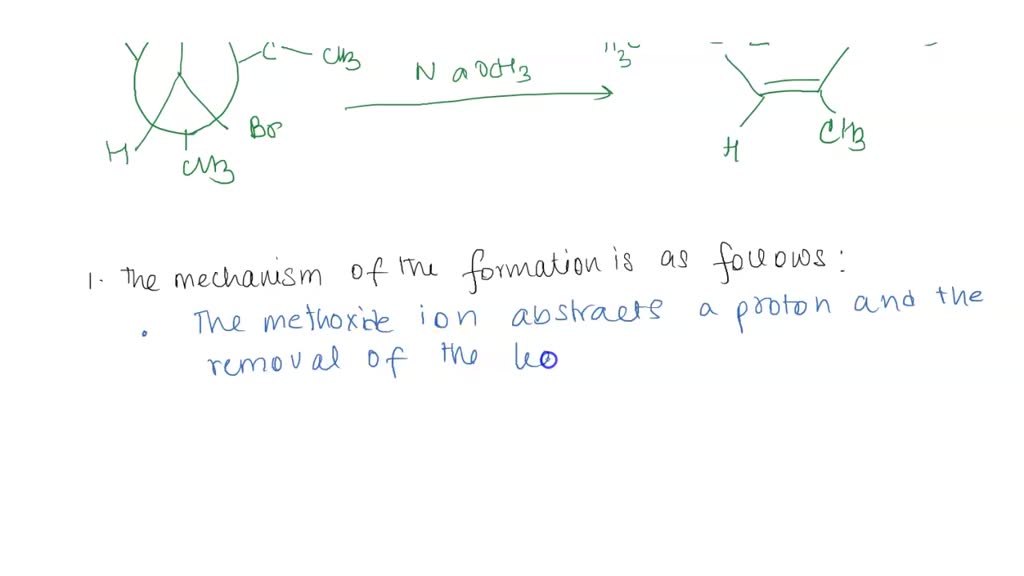 C CH3
NaOCH3
Br
H
CH3
H
CH3
1. The mechanism of the formation is as follows:
. The methoxide ion abstracts a proton and the
removal of the